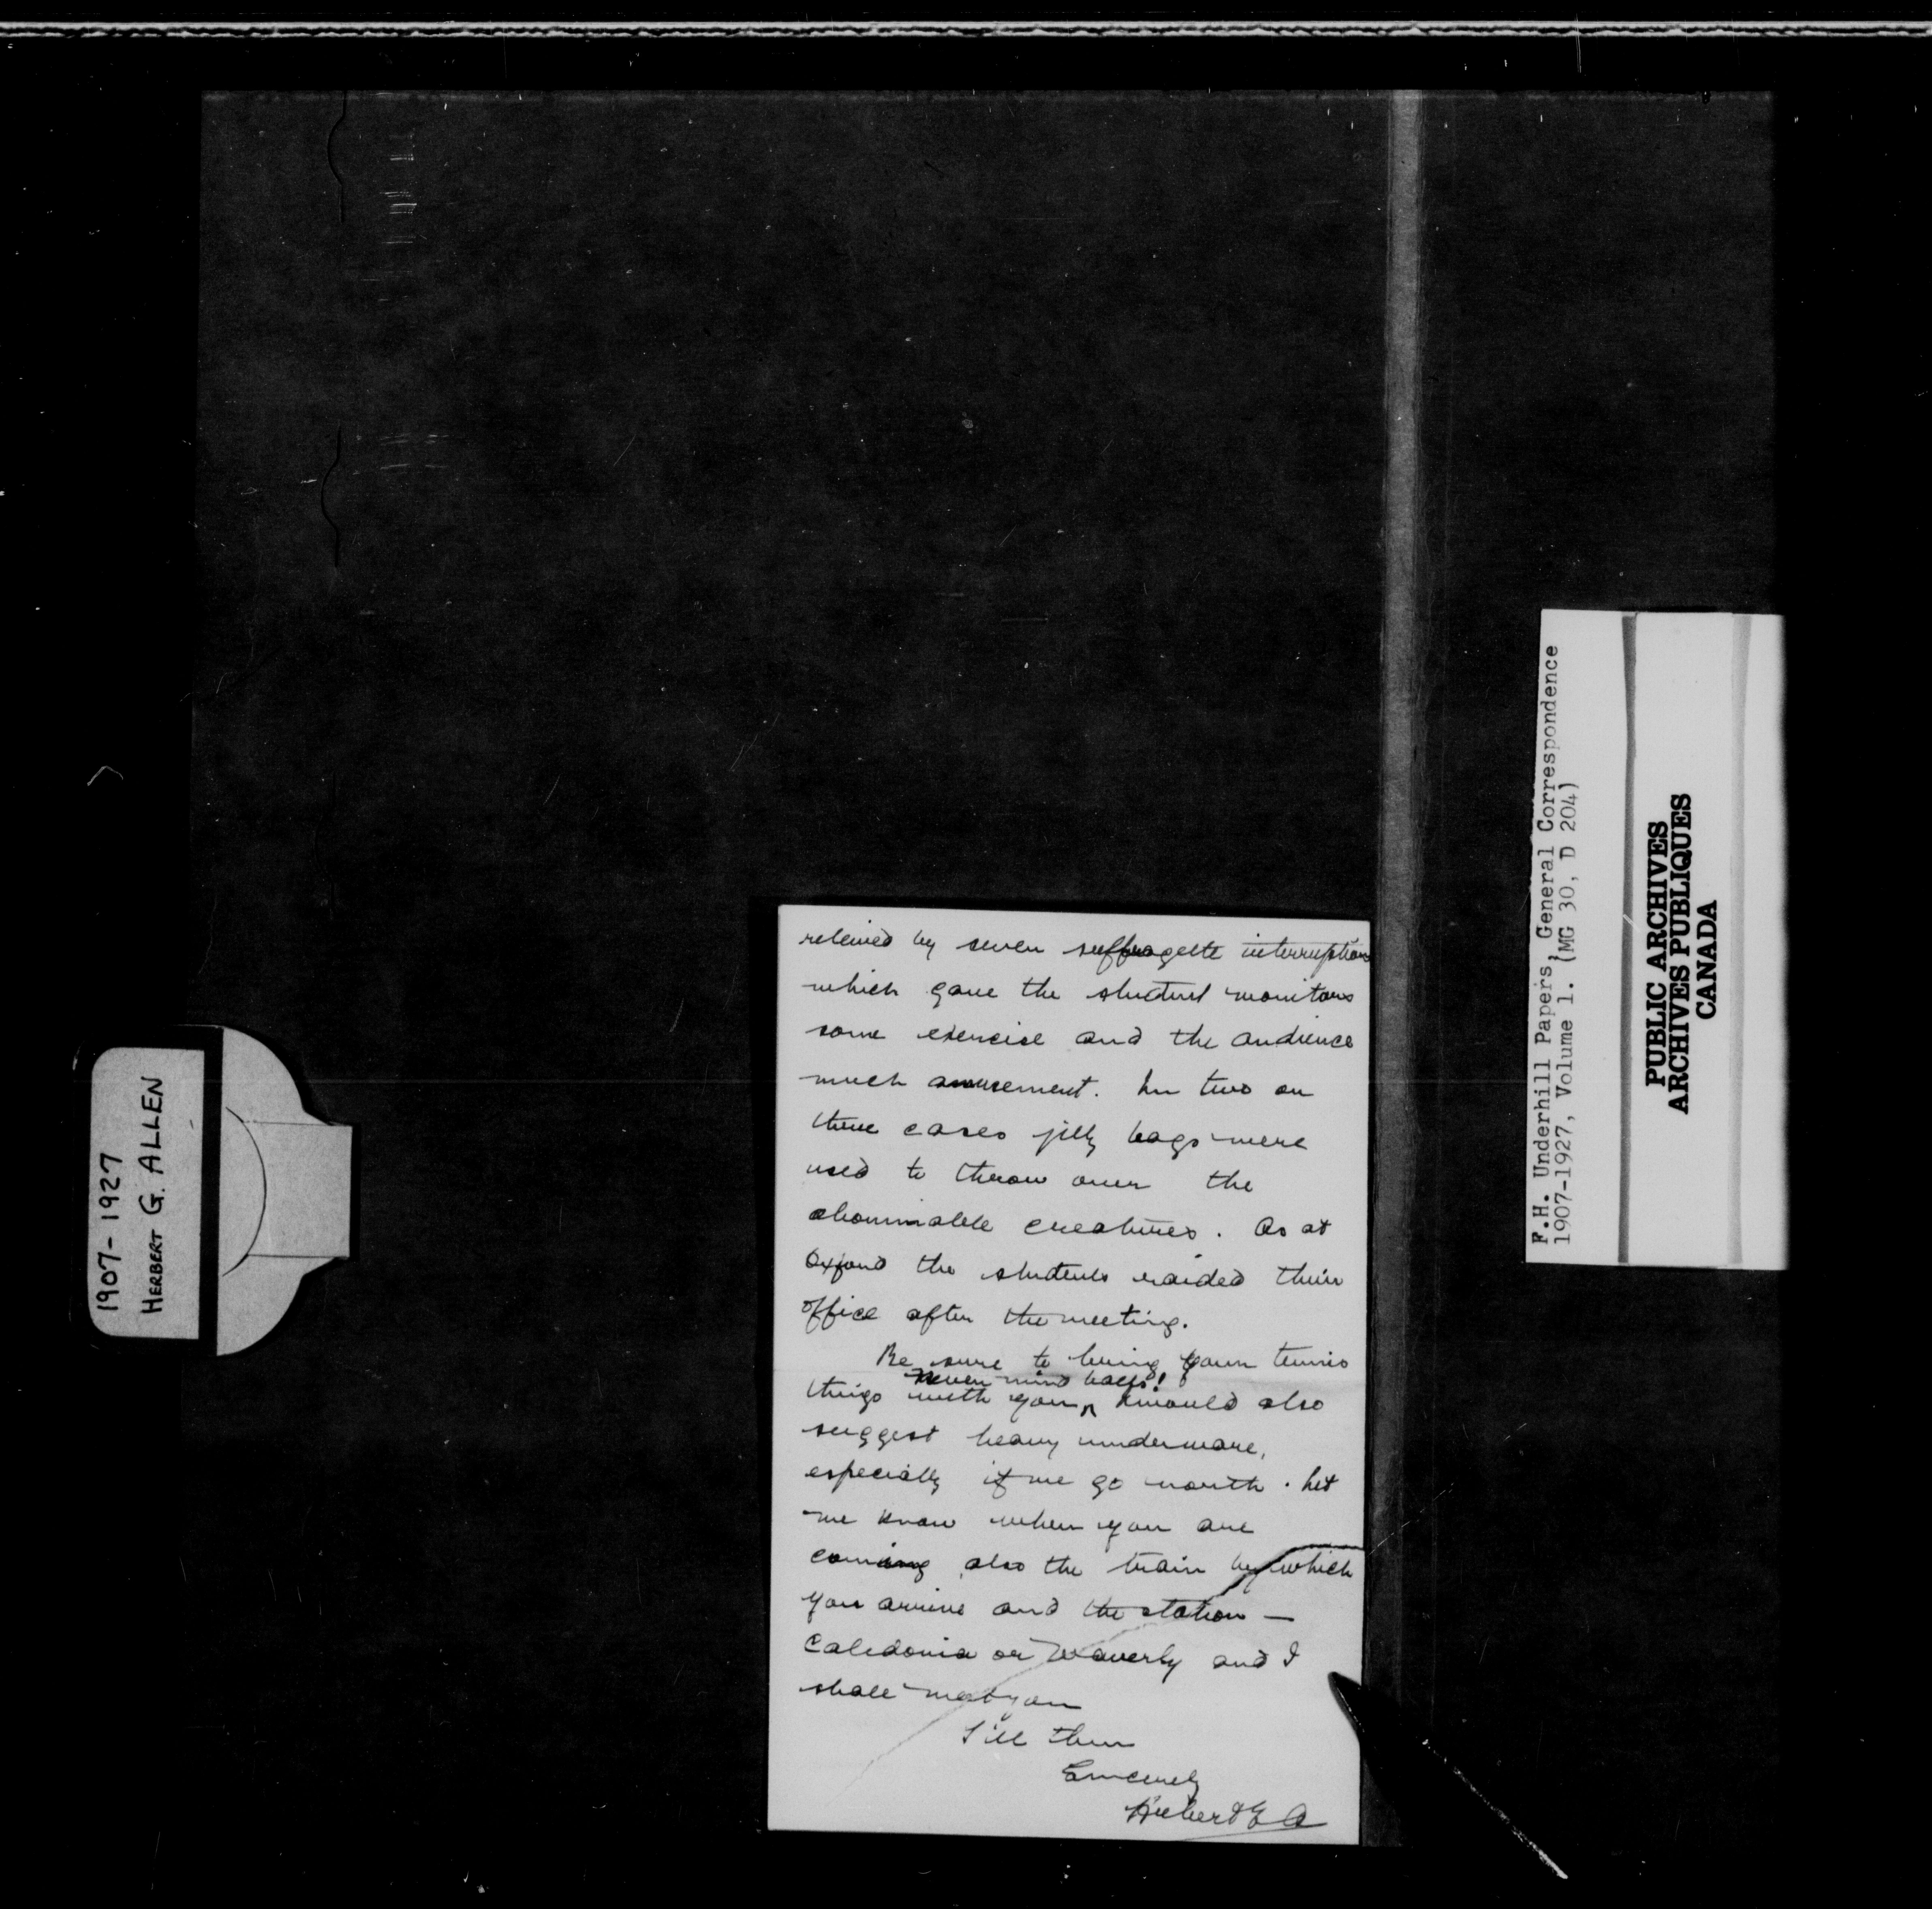 1907-1927
HERBERT G. ALLEN
releived by seven suffragette interruptions
which gave the student monitors
some exercise and the audience
much amusement. In two or
three cases jelly bags were
used to throw over the
abominable creatures. As at
Oxford the students raided their
office after the meeting.
Be sure to bring your tennis
never mind balls!
things with you I would also
suggest heavy underware,
especially if we go north. Let
me know when you are
coming also the train by which
you arrive and the station —
Caledonia or Waverly and I
shall meet you
Till then
Sincerely
Herbert G A
F.H. Underhill Papers, General Correspondence
1907-1927, Volume 1. (MG 30, D 204)
PUBLIC ARCHIVES
ARCHIVES PUBLIQUES
CANADA